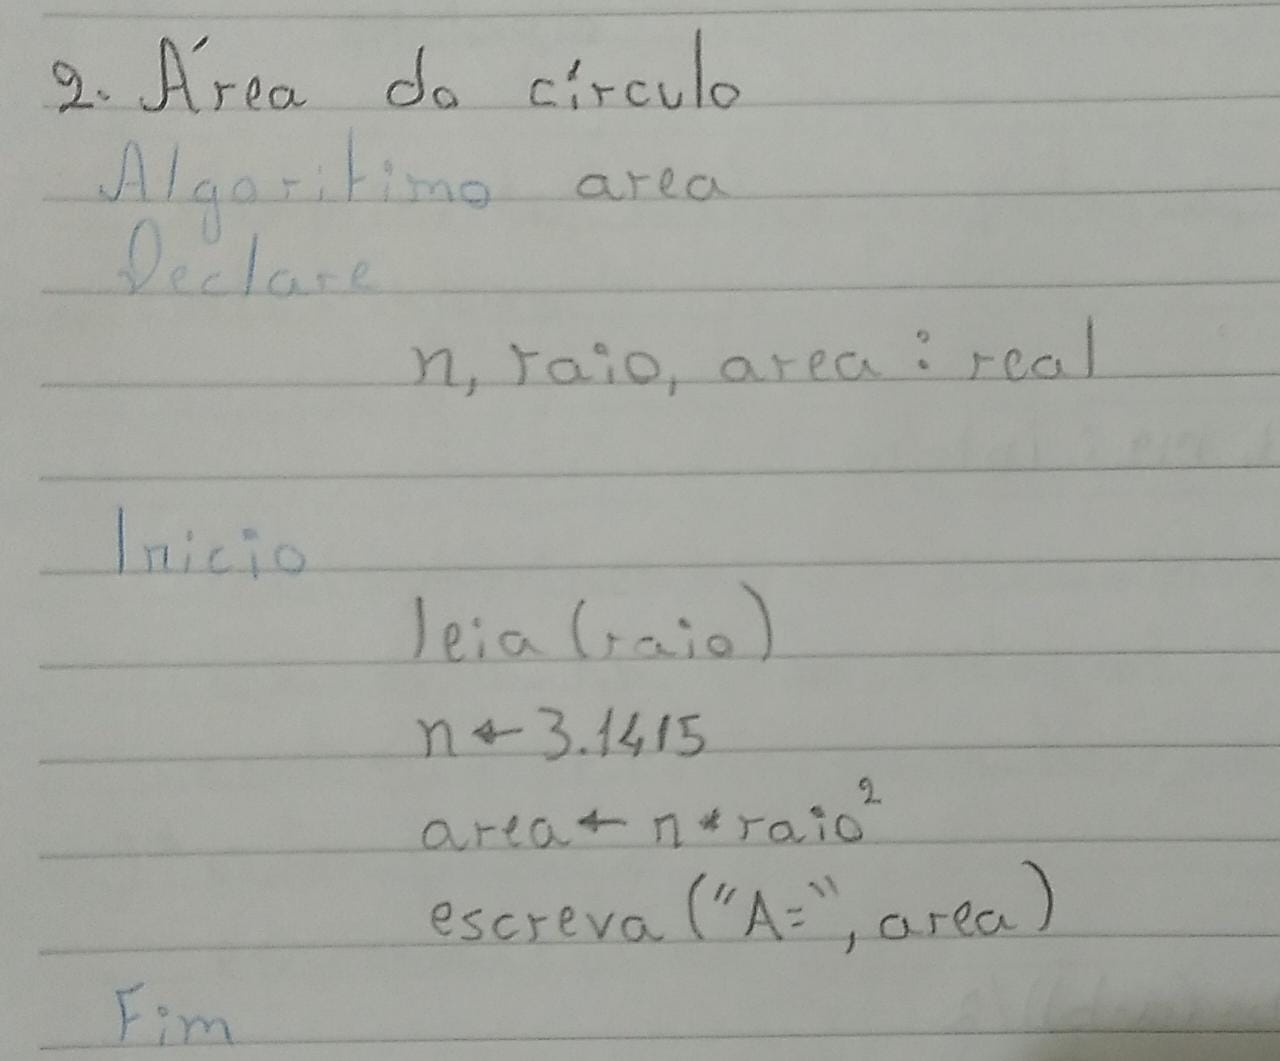 2. Área do círculo
Algoritimo area
Declare
n, raio, area : real
Inicio
leia (raio)
n ← 3.1415
area ← n * raio²
escreva ("A=", area)
Fim